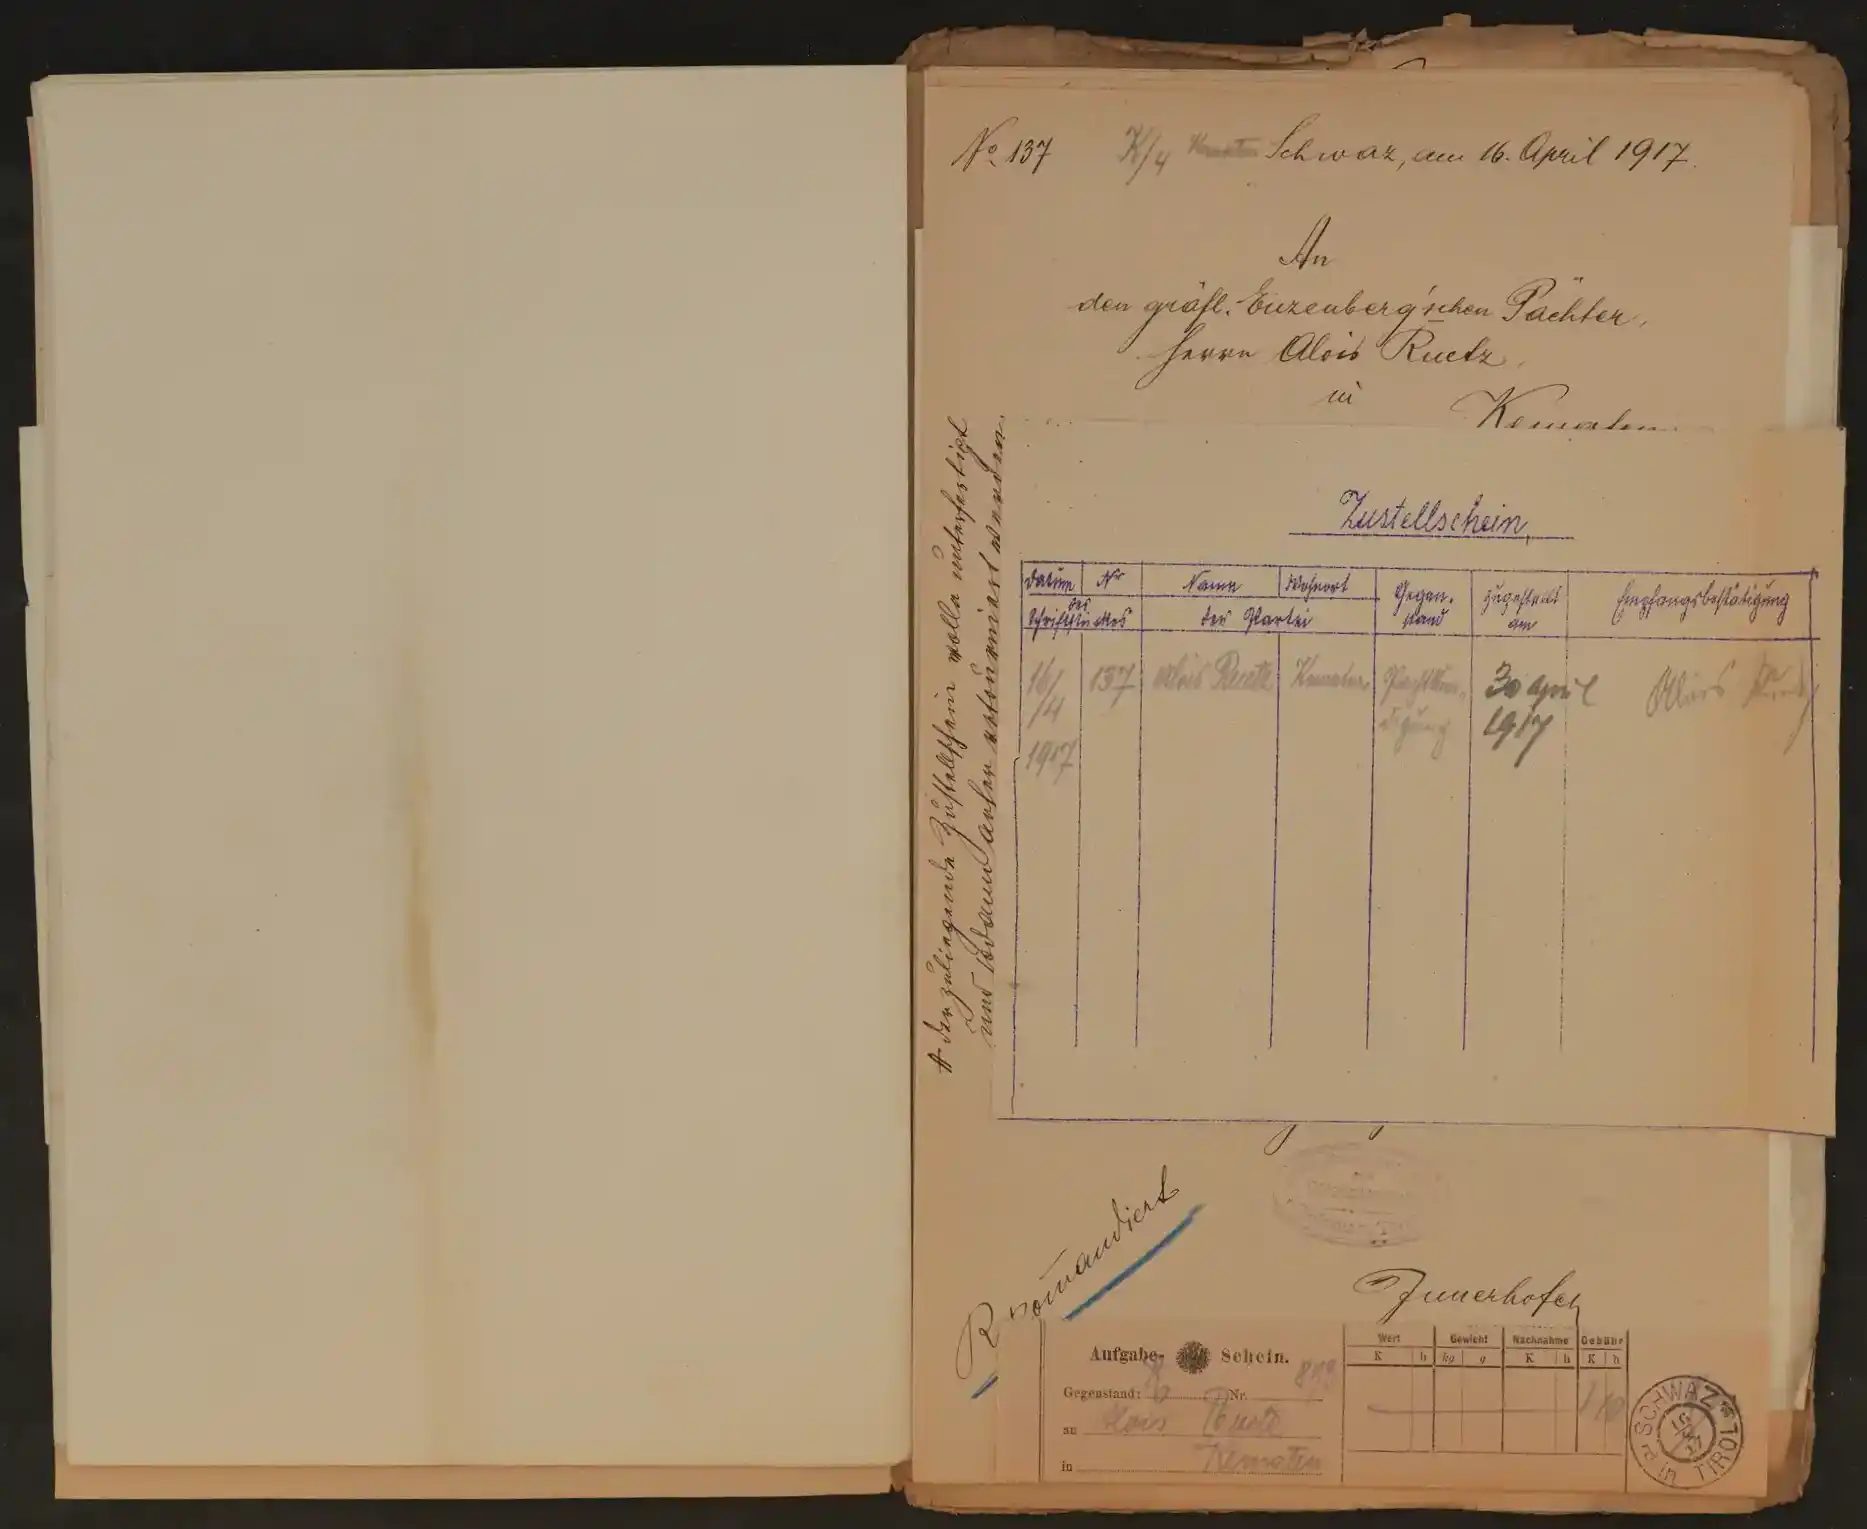 No 137 K/4 Kematen Schwaz, am 16. April 1917.
An
den gräfl. Enzenberg'schen Pächter,
Herrn Alois Ruetz,
in
Kematen
Der zuliegende Zustellschein wolle unterfertigt
und sodann anher retourniert werden.
Zustellschein,
Datum Nr Name Wohnort Gegen- zugestellt Empfangsbestätigung
des
Schriftstückes der Partei stand am
16/ 137 Alois Ruetz Kematen Pachtkün- 30 April Alois Ruetz
/4 digung 1917
1917
Rekomandiert
Innerhofer
Aufgabe-Schein.
Gegenstand: Nr.
an Alois Ruetz
in Kematen
Wert Gewicht Nachnahme Gebühr
K h kg g K h K h
SCHWAZ in TIROL